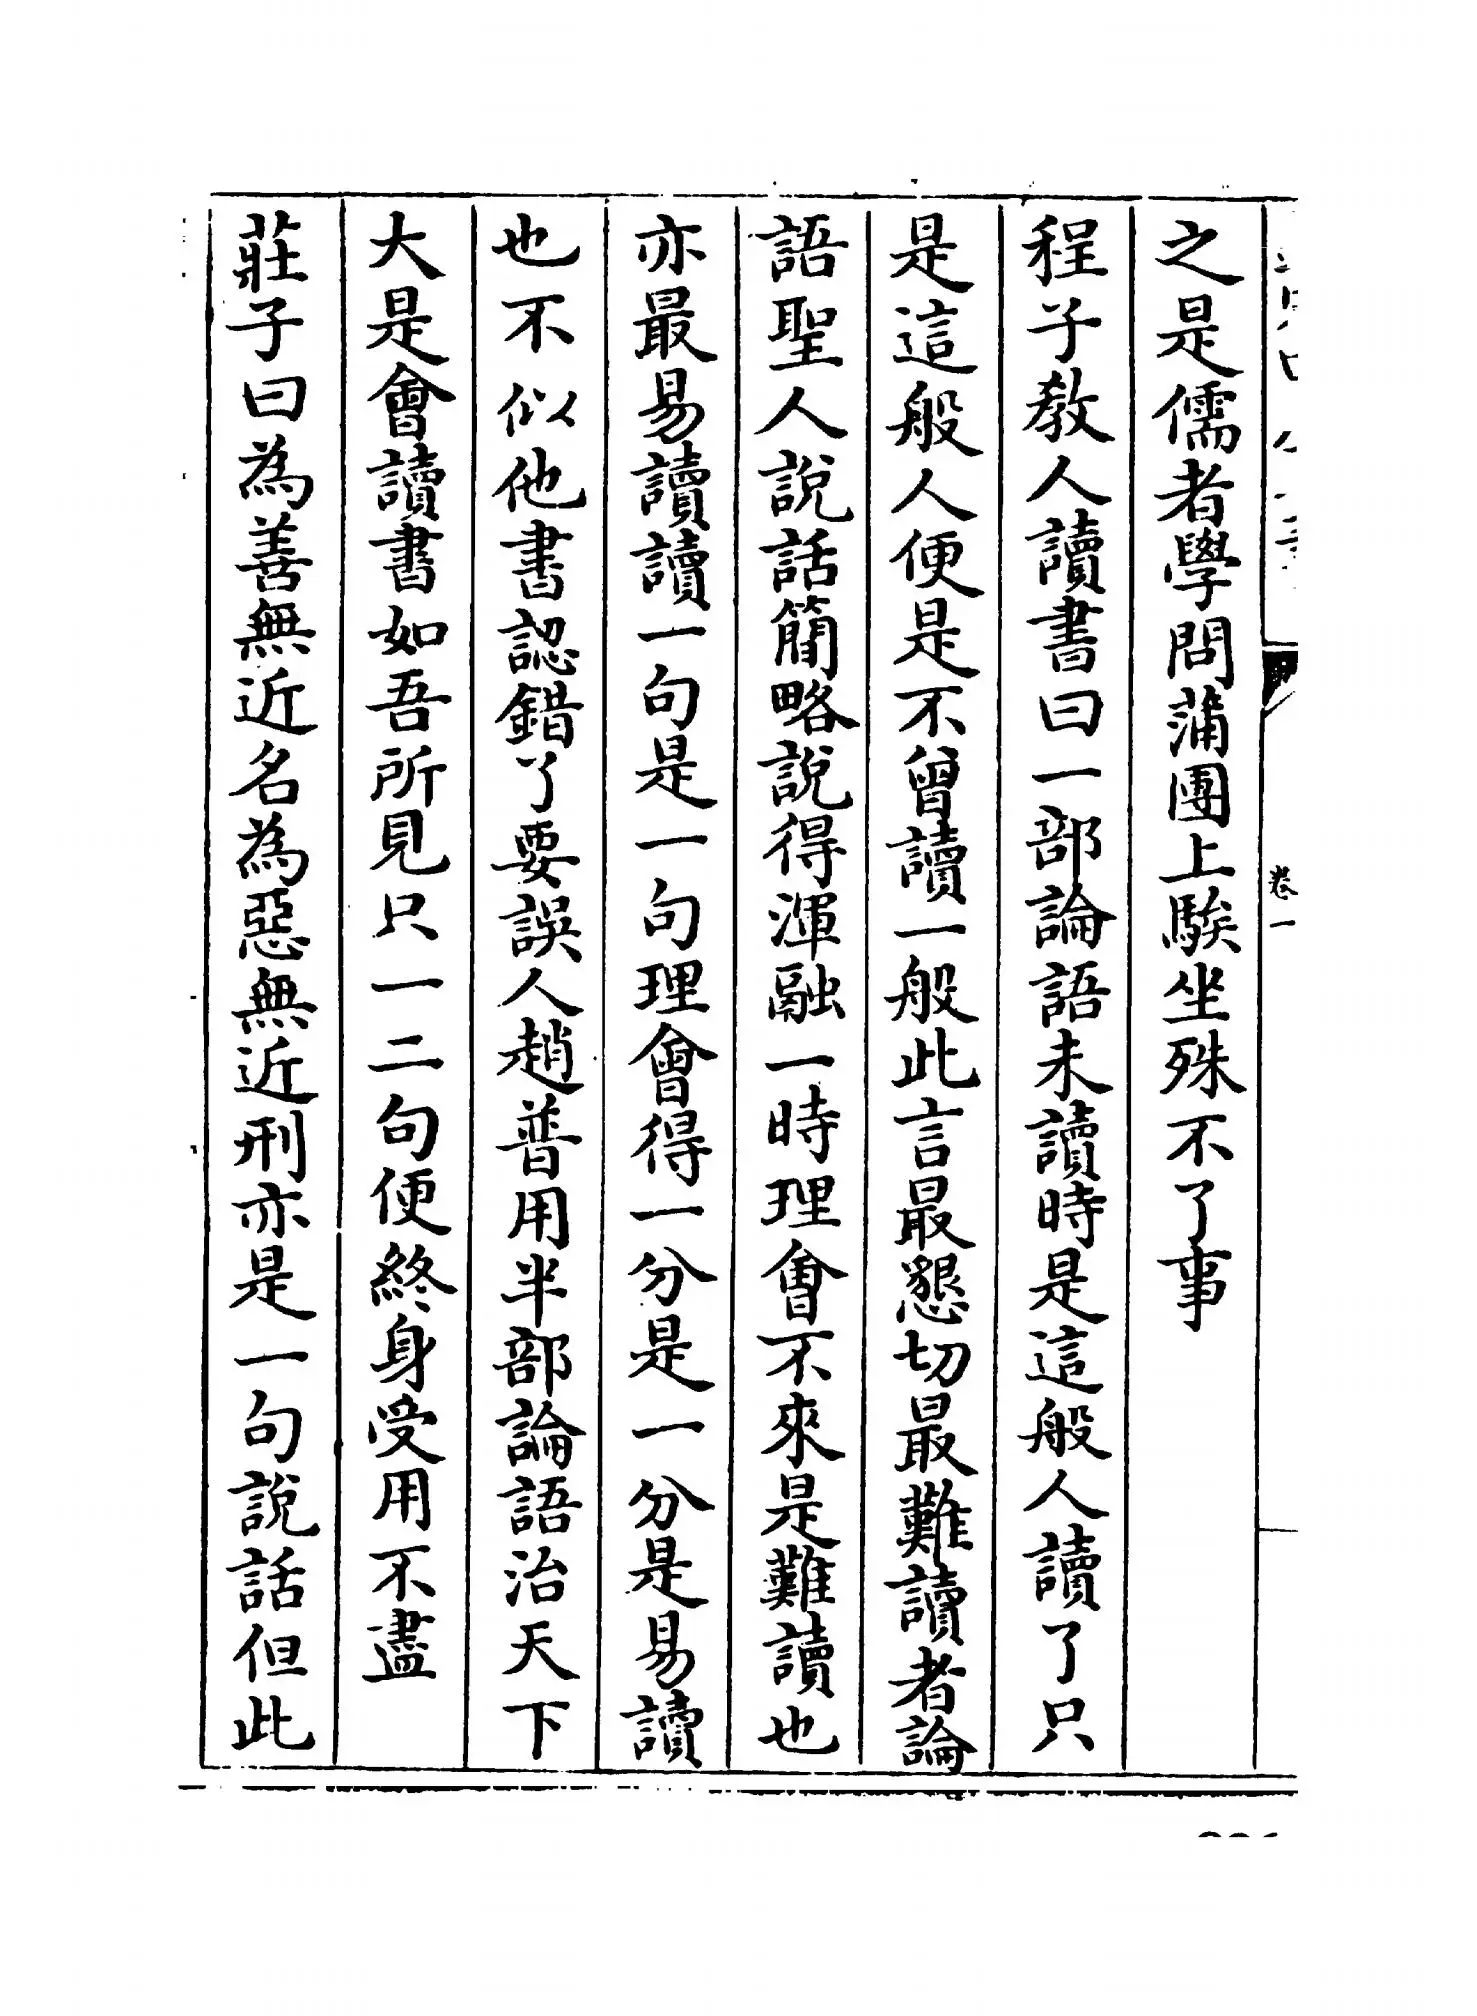 卷一
之是儒者學問蒲團上騃坐殊不了事
程子教人讀書曰一部論語未讀時是這般人讀了只
是這般人便是不曾讀一般此言最懇切最難讀者論
語聖人說話簡略說得渾融一時理會不來是難讀也
亦最易讀讀一句是一句理會得一分是一分是易讀
也不似他書認錯了要誤人趙普用半部論語治天下
大是會讀書如吾所見只一二句便終身受用不盡
莊子曰為善無近名為惡無近刑亦是一句說話但此